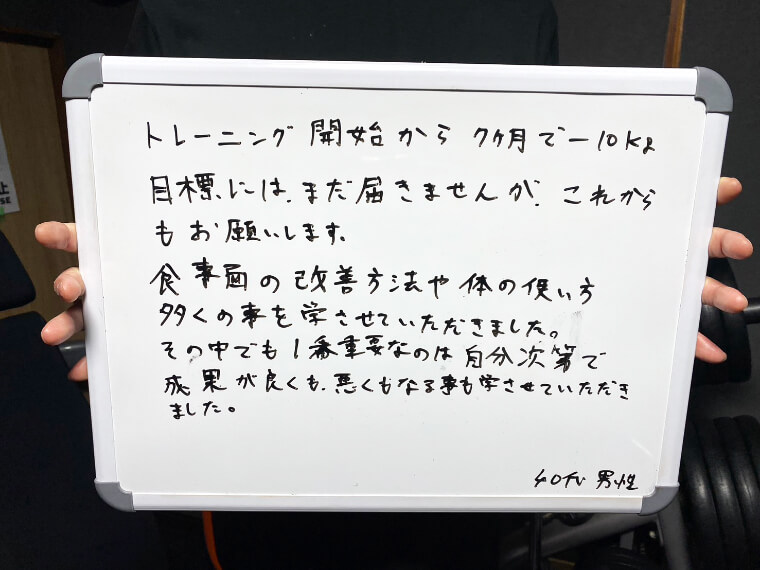 トレーニング開始から 7ヶ月で－10kg
目標には、まだ届きませんが、これから
もお願いします。
食事面の改善方法や体の使い方
多くの事を学させていただきました。
その中でも1番重要なのは自分次第で
成果が良くも、悪くもなる事も学させていただき
ました。
40代 男性